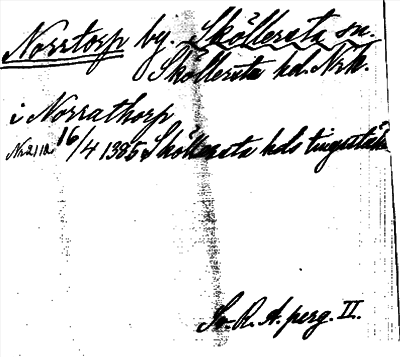 Norrtorp by. Sköllersta sn.
Sköllersta hd. Nrk.
i Norrathorp
16/4 1385 Sköllersta hds tingställe
Sv. R. A. perg. II.